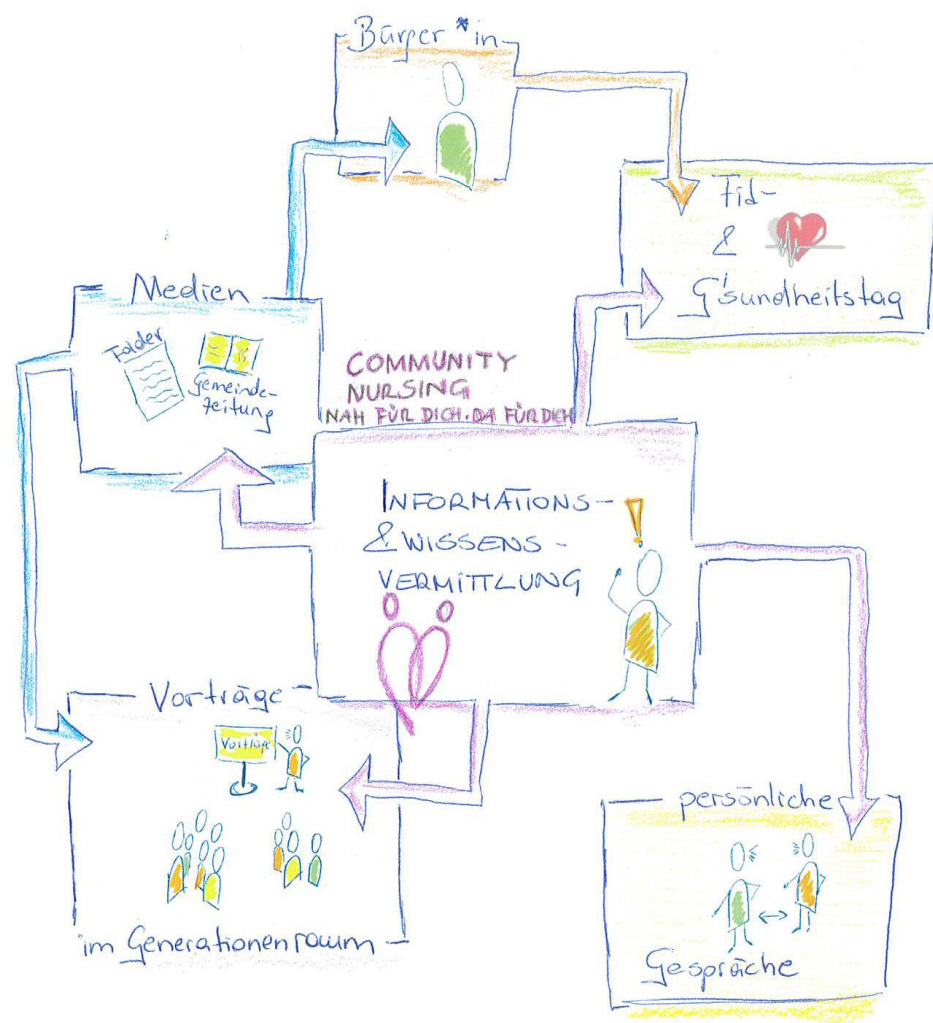 Bürger*in
Fid-
&
G'sundheitstag
Medien
Folder
Gemeinde-
zeitung
COMMUNITY
NURSING
NAH FÜR DICH. DA FÜR DICH
INFORMATIONS-
& WISSENS-
VERMITTLUNG
Vorträge
Vorträge
im Generationenraum
persönliche
Gespräche